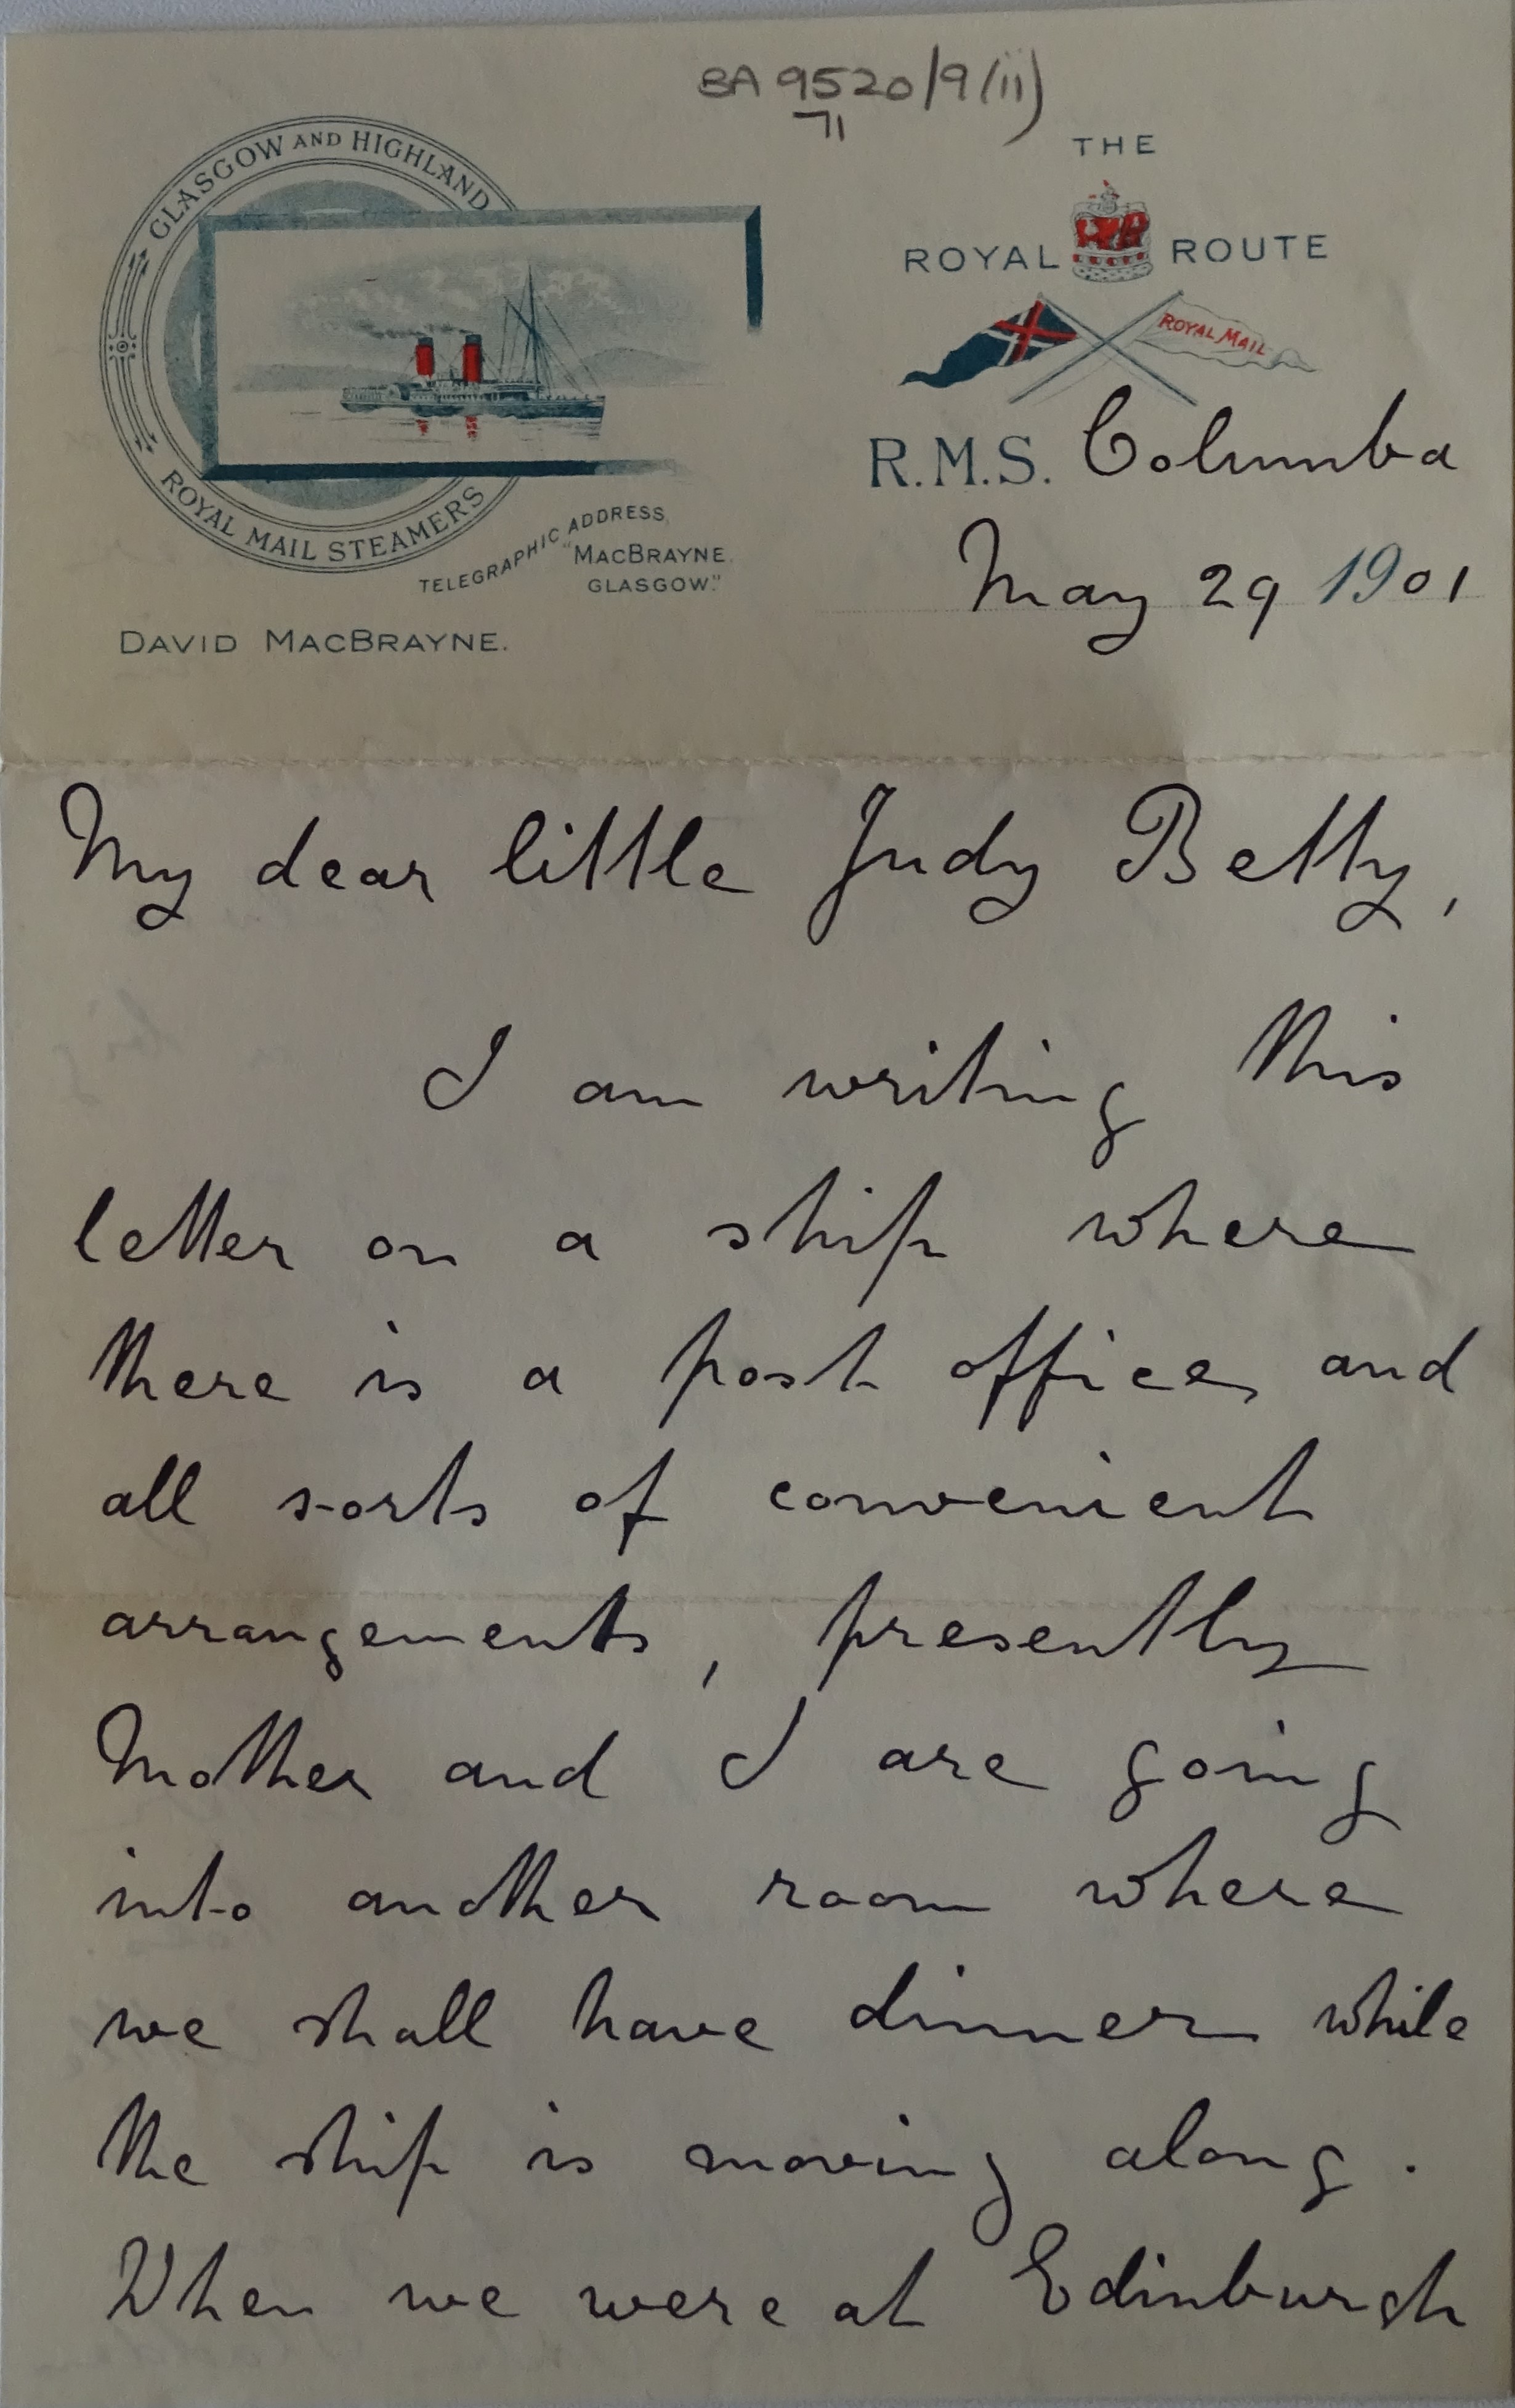 BA 9520/9(ii)
71
GLASGOW AND HIGHLAND
ROYAL MAIL STEAMERS
TELEGRAPHIC ADDRESS,
"MACBRAYNE.
GLASGOW."
DAVID MACBRAYNE.
THE
ROYAL ROUTE
ROYAL MAIL
R.M.S. Columba
May 29 1901
My dear little Judy Betty,
I am writing this
letter on a ship where
there is a post office, and
all sorts of convenient
arrangements, presently
Mother and I are going
into another room where
we shall have dinner while
the ship is moving along.
When we were at Edinburgh